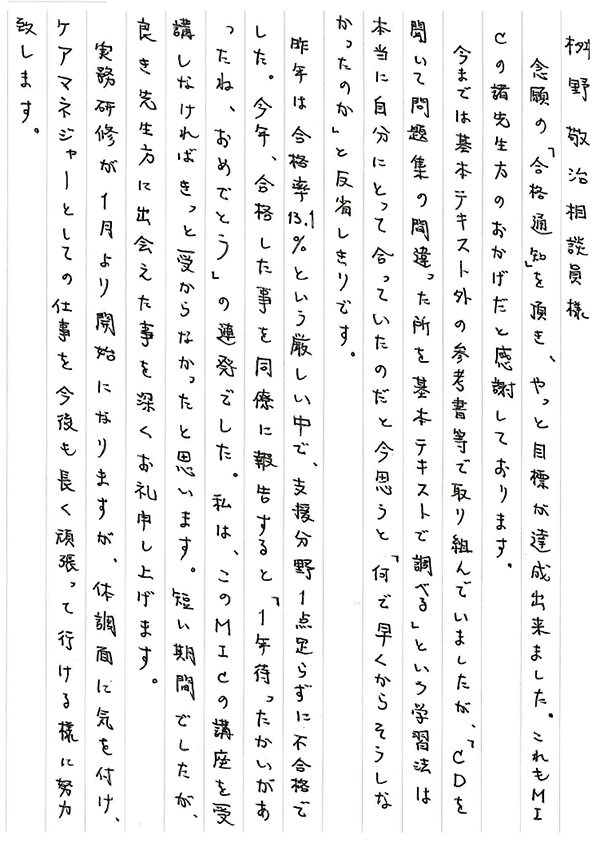 桝野敬治相談員様
念願の「合格通知」を頂き、やっと目標が達成出来ました。これもMI
Cの諸先生方のおかげだと感謝しております。
今までは基本テキスト外の参考書等で取り組んでいましたが、「CDを
聞いて問題集の間違った所を基本テキストで調べる」という学習法は
本当に自分にとって合っていたのだと今思うと「何で早くからそうしな
かったのか」と反省しきりです。
昨年は合格率13.1%という厳しい中で、支援分野1点足らずに不合格で
した。今年、合格した事を同僚に報告すると「1年待ったかいがあ
ったね、おめでとう」の連発でした。私は、このMICの講座を受
講しなければきっと受からなかったと思います。短い期間でしたが、
良き先生方に出会えた事を深くお礼申し上げます。
実務研修が1月より開始になりますが、体調面に気を付け、
ケアマネジャーとしての仕事を今後も長く頑張って行ける様に努力
致します。